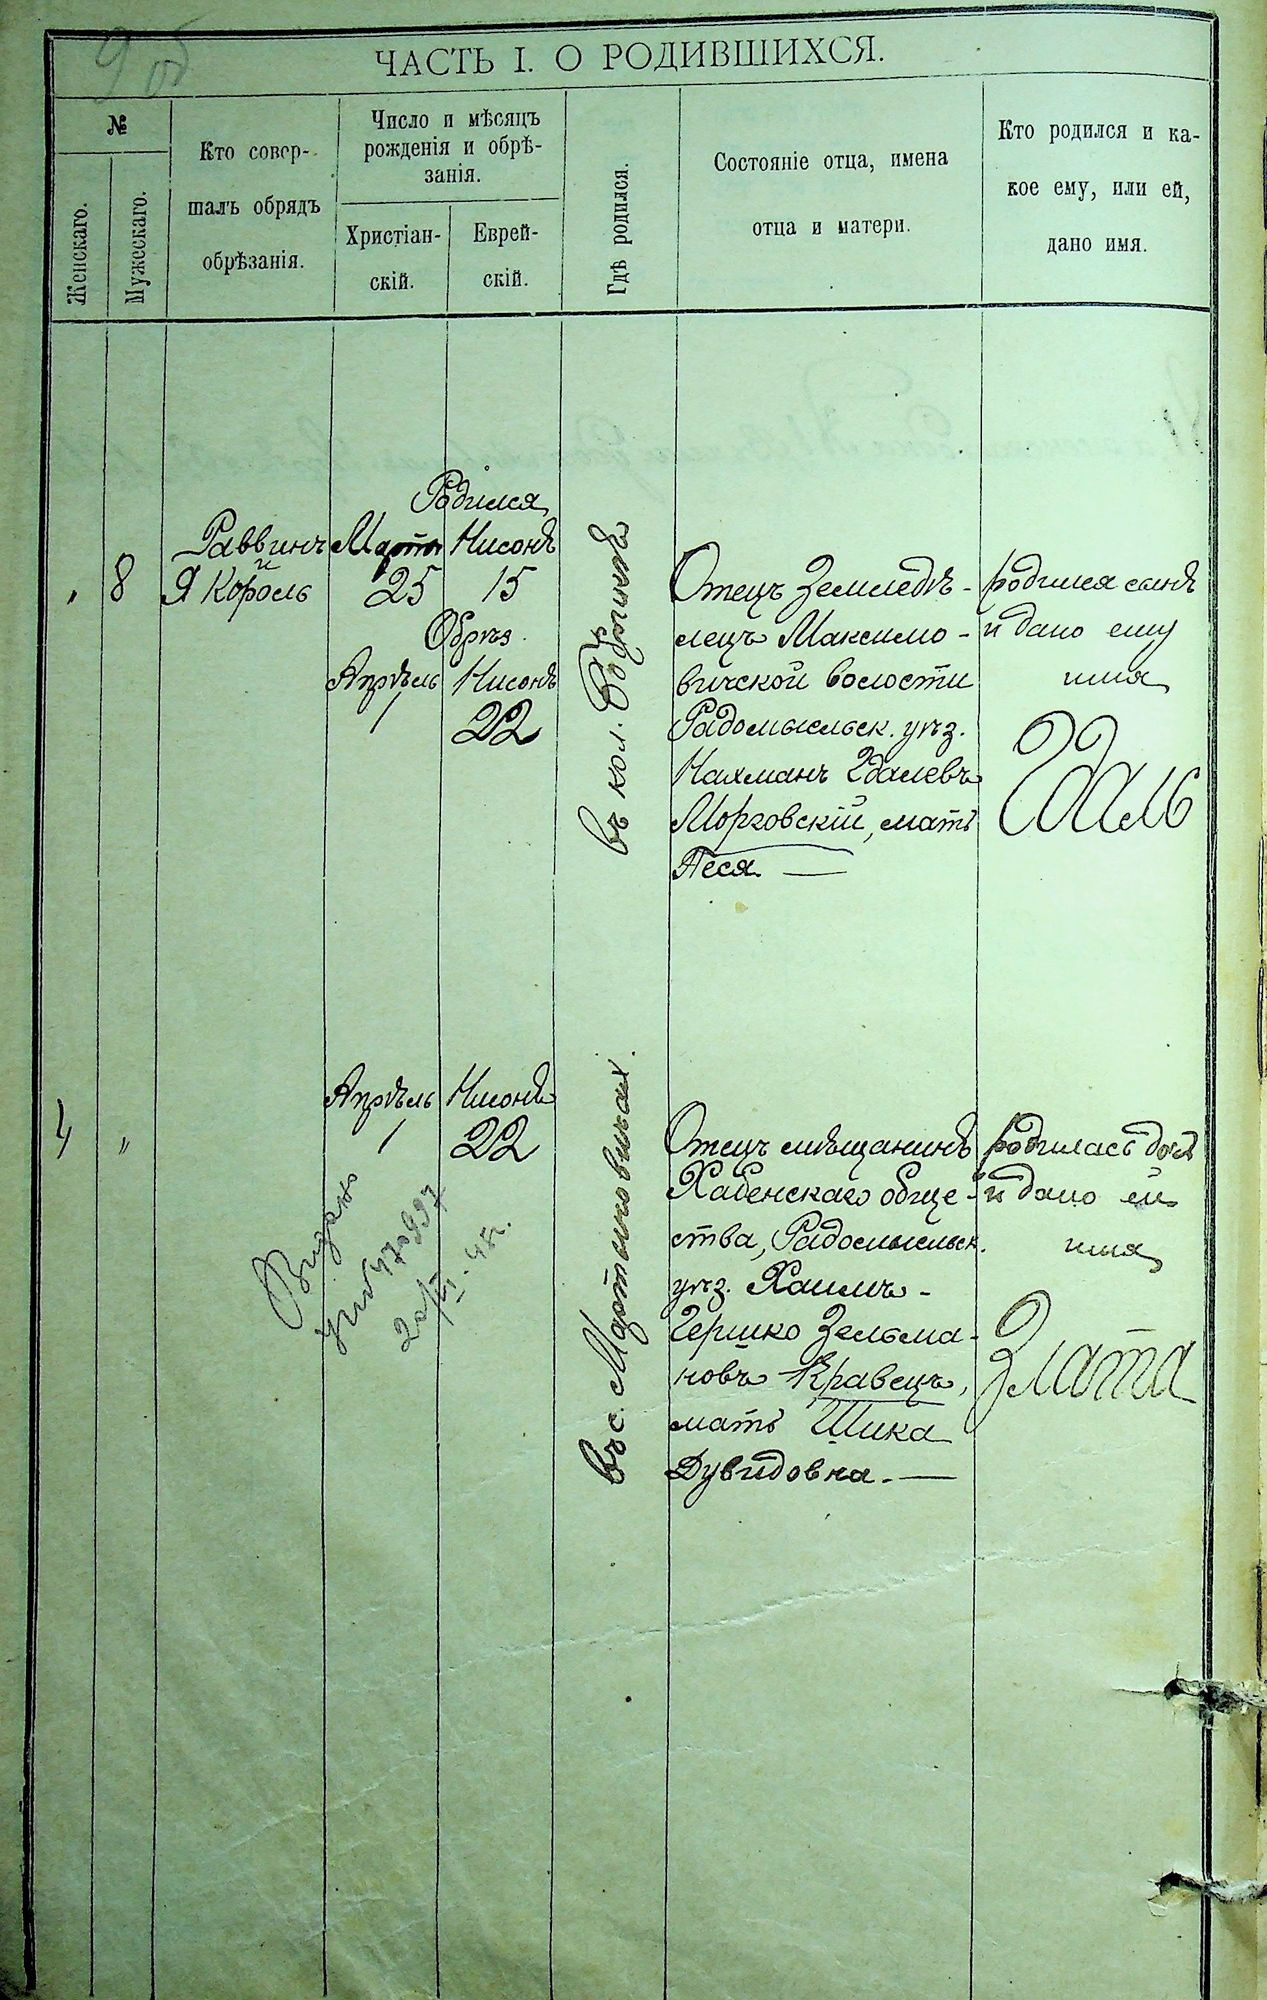 9 об
ЧАСТЬ I. О РОДИВШИХСЯ.
№
Женскаго.
Мужескаго.
Кто совер-
шалъ обрядъ
обрѣзанія.
Число и мѣсяцъ
рожденія и обрѣ-
занія.
Христіан-
скій.
Еврей-
скій.
Гдѣ родился.
Состояніе отца, имена
отца и матери.
Кто родился и ка-
кое ему, или ей,
дано имя.
" 8
Раввинъ
и
Я Король
Родился
Мартъ Нисонъ
25 15
Обрѣз.
Апрѣль Нисонъ
1 22
въ кол.
Отецъ Земледѣ-
лецъ Максимо-
вичской волости
Радомысльск. уѣз.
Нахманъ Гдалевъ
Морговскій, мать
Песя —
родился сынъ
и дано ему
имя
Гдаль
4 "
Апрѣль Нисонъ
1 22
въ с. Мартыновичах.
Отецъ мѣщанинъ
Хабенскаго обще-
ства, Радомысльск.
уѣз. Хаимъ-
Гершко Зельма-
новъ Кравецъ,
мать Шика
Дувидовна. —
родилась дочь
и дано ей
имя
Злата